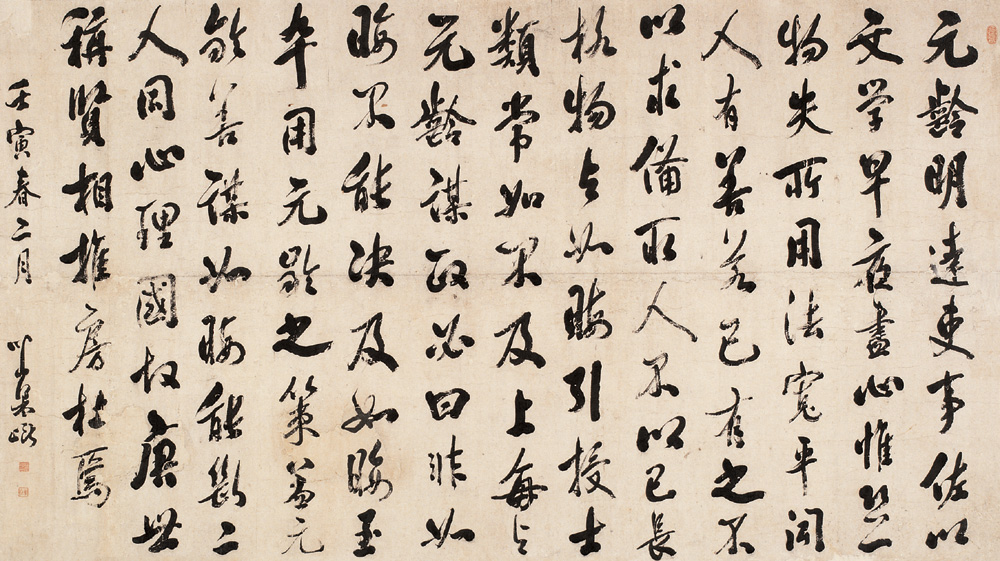 元齡明達吏事佐以
文学早夜盡心惟恐一
物失所用法寬平闻
人有善若己有之不
以求備取人不以己長
格物与如晦引拔士
類常如不及上每与
元齡謀政必曰非如
晦不能决及如晦至
卒用元齡之策盖元
齡善謀如晦能斷二
人同心理國故唐世
稱賢相推房杜焉
壬寅春二月